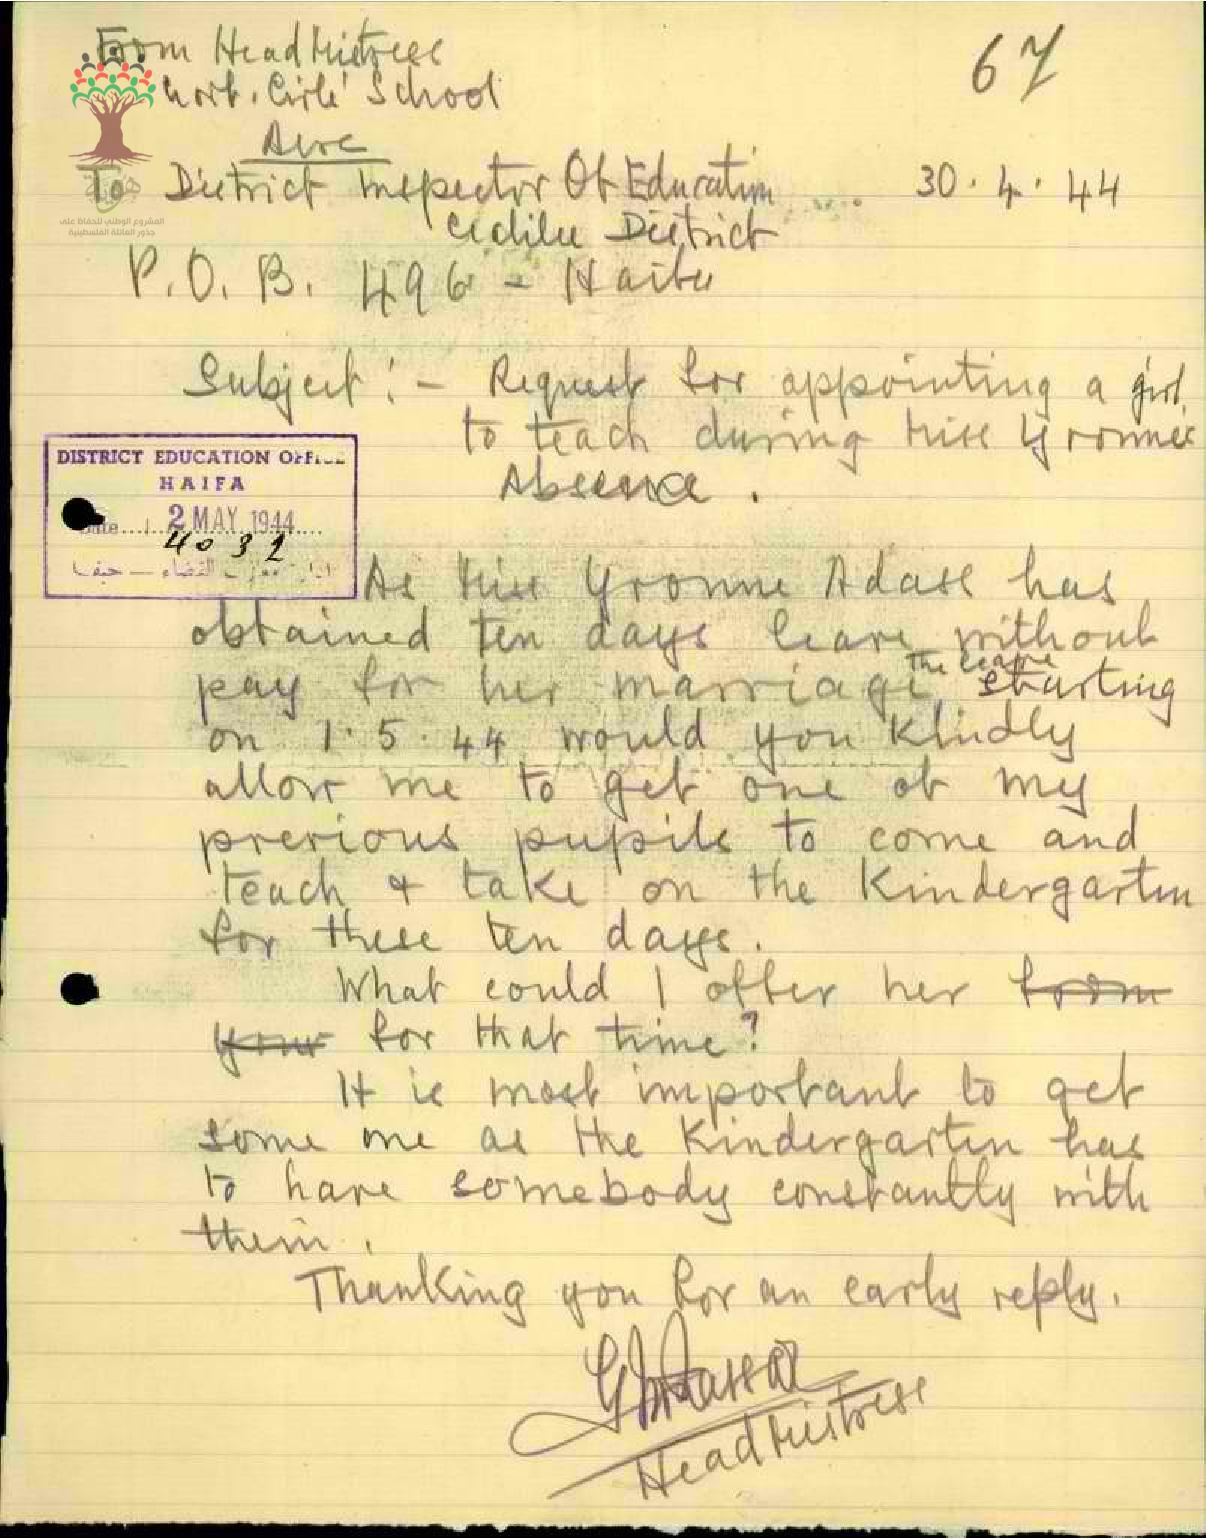 From HeadMistress
Govt. Girls' School
Acre
67
To District Inspector Of Education
30.4.44
Galilee District
P.O.B. 496 - Haifa
المشروع الوطني للحفاظ على
جذور العائلة الفلسطينية
Subject :- Request for appointing a girl
to teach during Miss Yvonne's
Absence.
DISTRICT EDUCATION OFFICE
HAIFA
Date 2 MAY 1944
4032
القضاء — حيفا
As Miss Yvonne Adass has
obtained ten days leave without
pay for her marriage, the leave starting
on 1.5.44 would you Kindly
allow me to get one of my
previous pupils to come and
teach & take on the Kindergarten
for these ten days.
What could I offer her from
your for that time?
It is most important to get
some one as the Kindergarten has
to have somebody constantly with
them.
Thanking you for an early reply.
HeadMistress